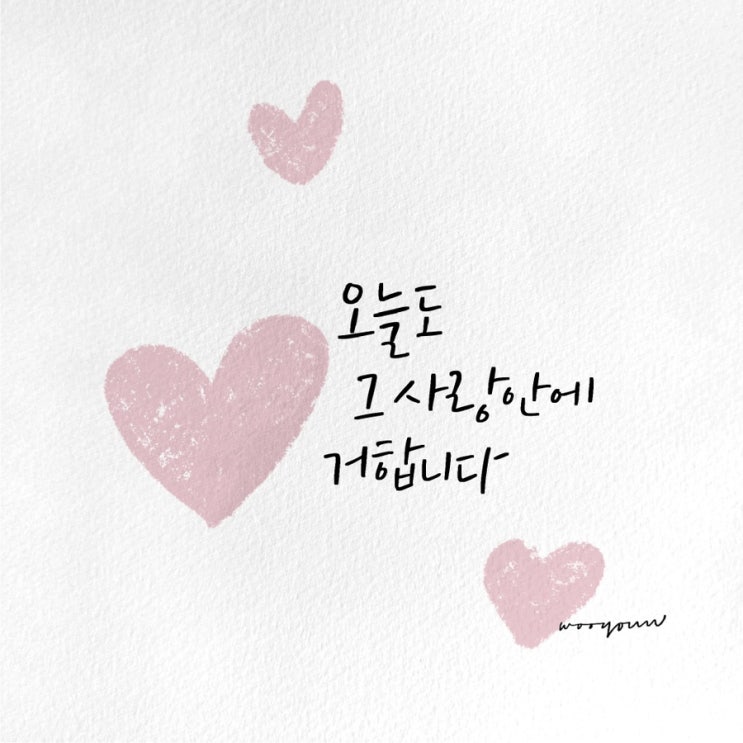 오늘도
그 사랑안에
거합니다
wooyoun